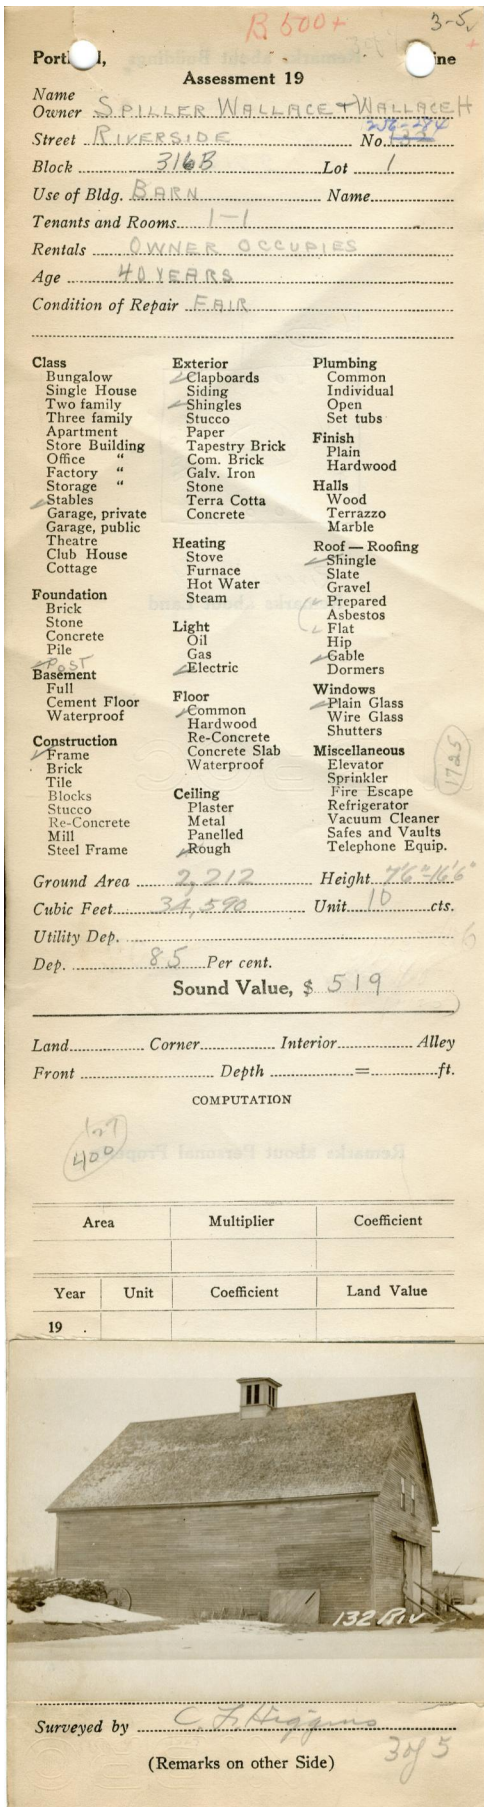 B 500+
3-5
+
Portl d, ine
Assessment 19
Name
Owner SPILLER WALLACE & WALLACE H
256-284
Street RIVERSIDE No. 132
Block 316B Lot 1
Use of Bldg. BARN Name
Tenants and Rooms 1-1
Rentals OWNER OCCUPIES
Age 40 YEARS
Condition of Repair FAIR
Class
Bungalow
Single House
Two family
Three family
Apartment
Store Building
Office "
Factory "
Storage "
✓ Stables
Garage, private
Garage, public
Theatre
Club House
Cottage
Foundation
Brick
Stone
Concrete
Pile
✓ POST
Basement
Full
Cement Floor
Waterproof
Construction
✓ Frame
Brick
Tile
Blocks
Stucco
Re-Concrete
Mill
Steel Frame
Exterior
✓ Clapboards
Siding
✓ Shingles
Stucco
Paper
Tapestry Brick
Com. Brick
Galv. Iron
Stone
Terra Cotta
Concrete
Heating
Stove
Furnace
Hot Water
Steam
Light
Oil
Gas
✓ Electric
Floor
✓ Common
Hardwood
Re-Concrete
Concrete Slab
Waterproof
Ceiling
Plaster
Metal
Panelled
✓ Rough
Plumbing
Common
Individual
Open
Set tubs
Finish
Plain
Hardwood
Halls
Wood
Terrazzo
Marble
Roof — Roofing
✓ Shingle
Slate
Gravel
✓ Prepared
Asbestos
✓ Flat
Hip
✓ Gable
Dormers
Windows
✓ Plain Glass
Wire Glass
Shutters
Miscellaneous
Elevator
Sprinkler
Fire Escape
Refrigerator
Vacuum Cleaner
Safes and Vaults
Telephone Equip.
1725
Ground Area 2,212 Height 7'6"-16'6"
Cubic Feet 34,590 Unit 10 cts.
Utility Dep.
Dep. 85 Per cent.
Sound Value, $ 519
Land Corner Interior Alley
Front Depth = ft.
COMPUTATION
400
Area Multiplier Coefficient
Year Unit Coefficient Land Value
19 .
132 RIV
Surveyed by C. F. Higgins
(Remarks on other Side)
3 of 5